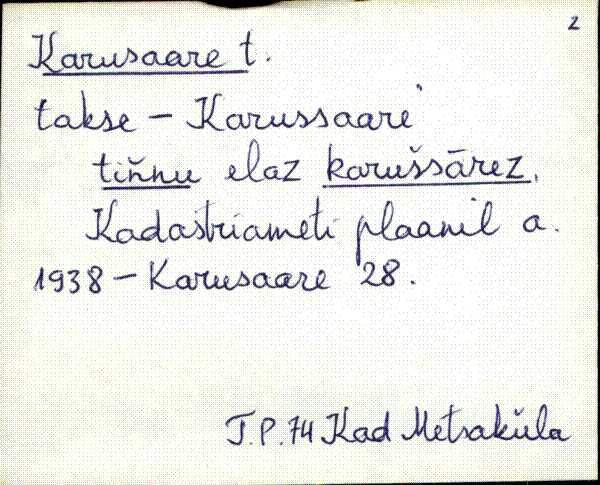 2
Karusaare t.
takse – Karussaare`
tiňnu elaz karušsārez.
Kadastriameti plaanil a.
1938 – Karusaare 28.
T.P. 74 Kad Metsaküla